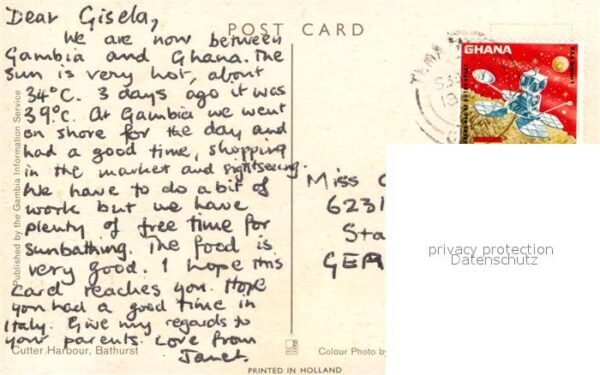 POST CARD
Dear Gisela,
We are now between
Gambia and Ghana. The
sun is very hot, about
34°C. 3 days ago it was
39°C. At Gambia we went
on shore for the day and
had a good time, shopping
in the market and sightseeing.
We have to do a bit of
work but we have
plenty of free time for
sunbathing. The food is
very good. I hope this
card reaches you. Hope
you had a good time in
Italy. Give my regards to
your parents. Love from
Janet.
Published by the Gambia Information Service
Cutter Harbour, Bathurst
Colour Photo by
PRINTED IN HOLLAND
GHANA
Miss
6231
Sta
GER
privacy protection
Datenschutz